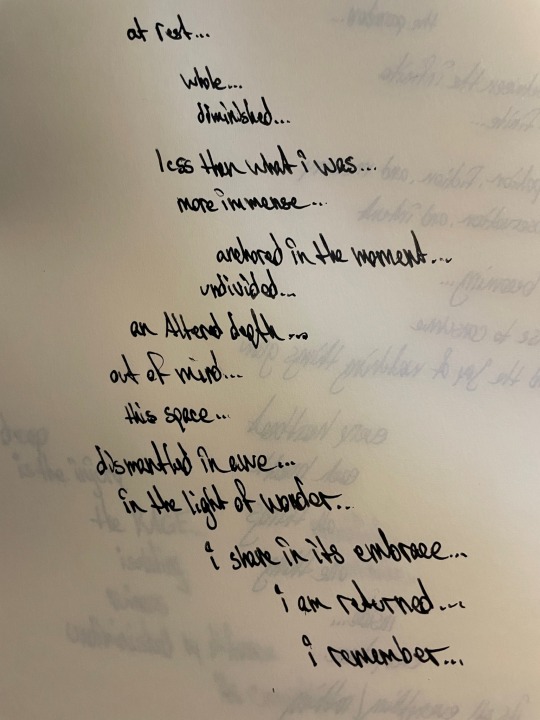 at rest...
whole...
diminished...
less then what i was...
more immense...
anchored in the moment...
undivided...
an Altered depth...
out of mind...
this space...
dismantled in awe...
in the light of wonder...
i share in its embrace...
i am returned...
i remember...